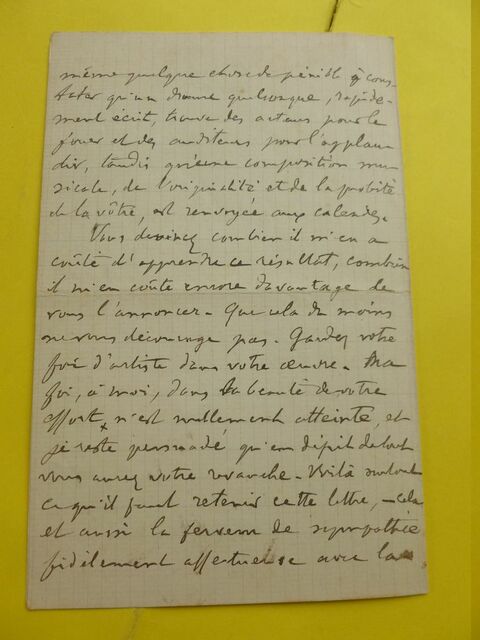 même quelque chose de pénible à cons-
tater qu'un drame quelconque, rapide-
ment écrit, trouve des acteurs pour le
jouer et des auditeurs pour l'applau-
dir, tandis qu'une composition mu-
sicale, de l'originalité et de la probité
de la vôtre, est renvoyée aux calendes.
Vous devinez combien il m'en a
coûté d'apprendre ce résultat, combien
il m'en coûte encore davantage de
vous l'annoncer. Que cela du moins
ne vous décourage pas. Gardez votre
foi d'artiste dans votre œuvre. Ma
foi, à moi, dans la beauté de votre
effort, n'est nullement atteinte, et
je reste persuadé qu'en dépit de tout
vous aurez votre revanche. Voilà surtout
ce qu'il faut retenir cette lettre, — cela
et aussi la ferveur de sympathie
fidèlement affectueuse avec la